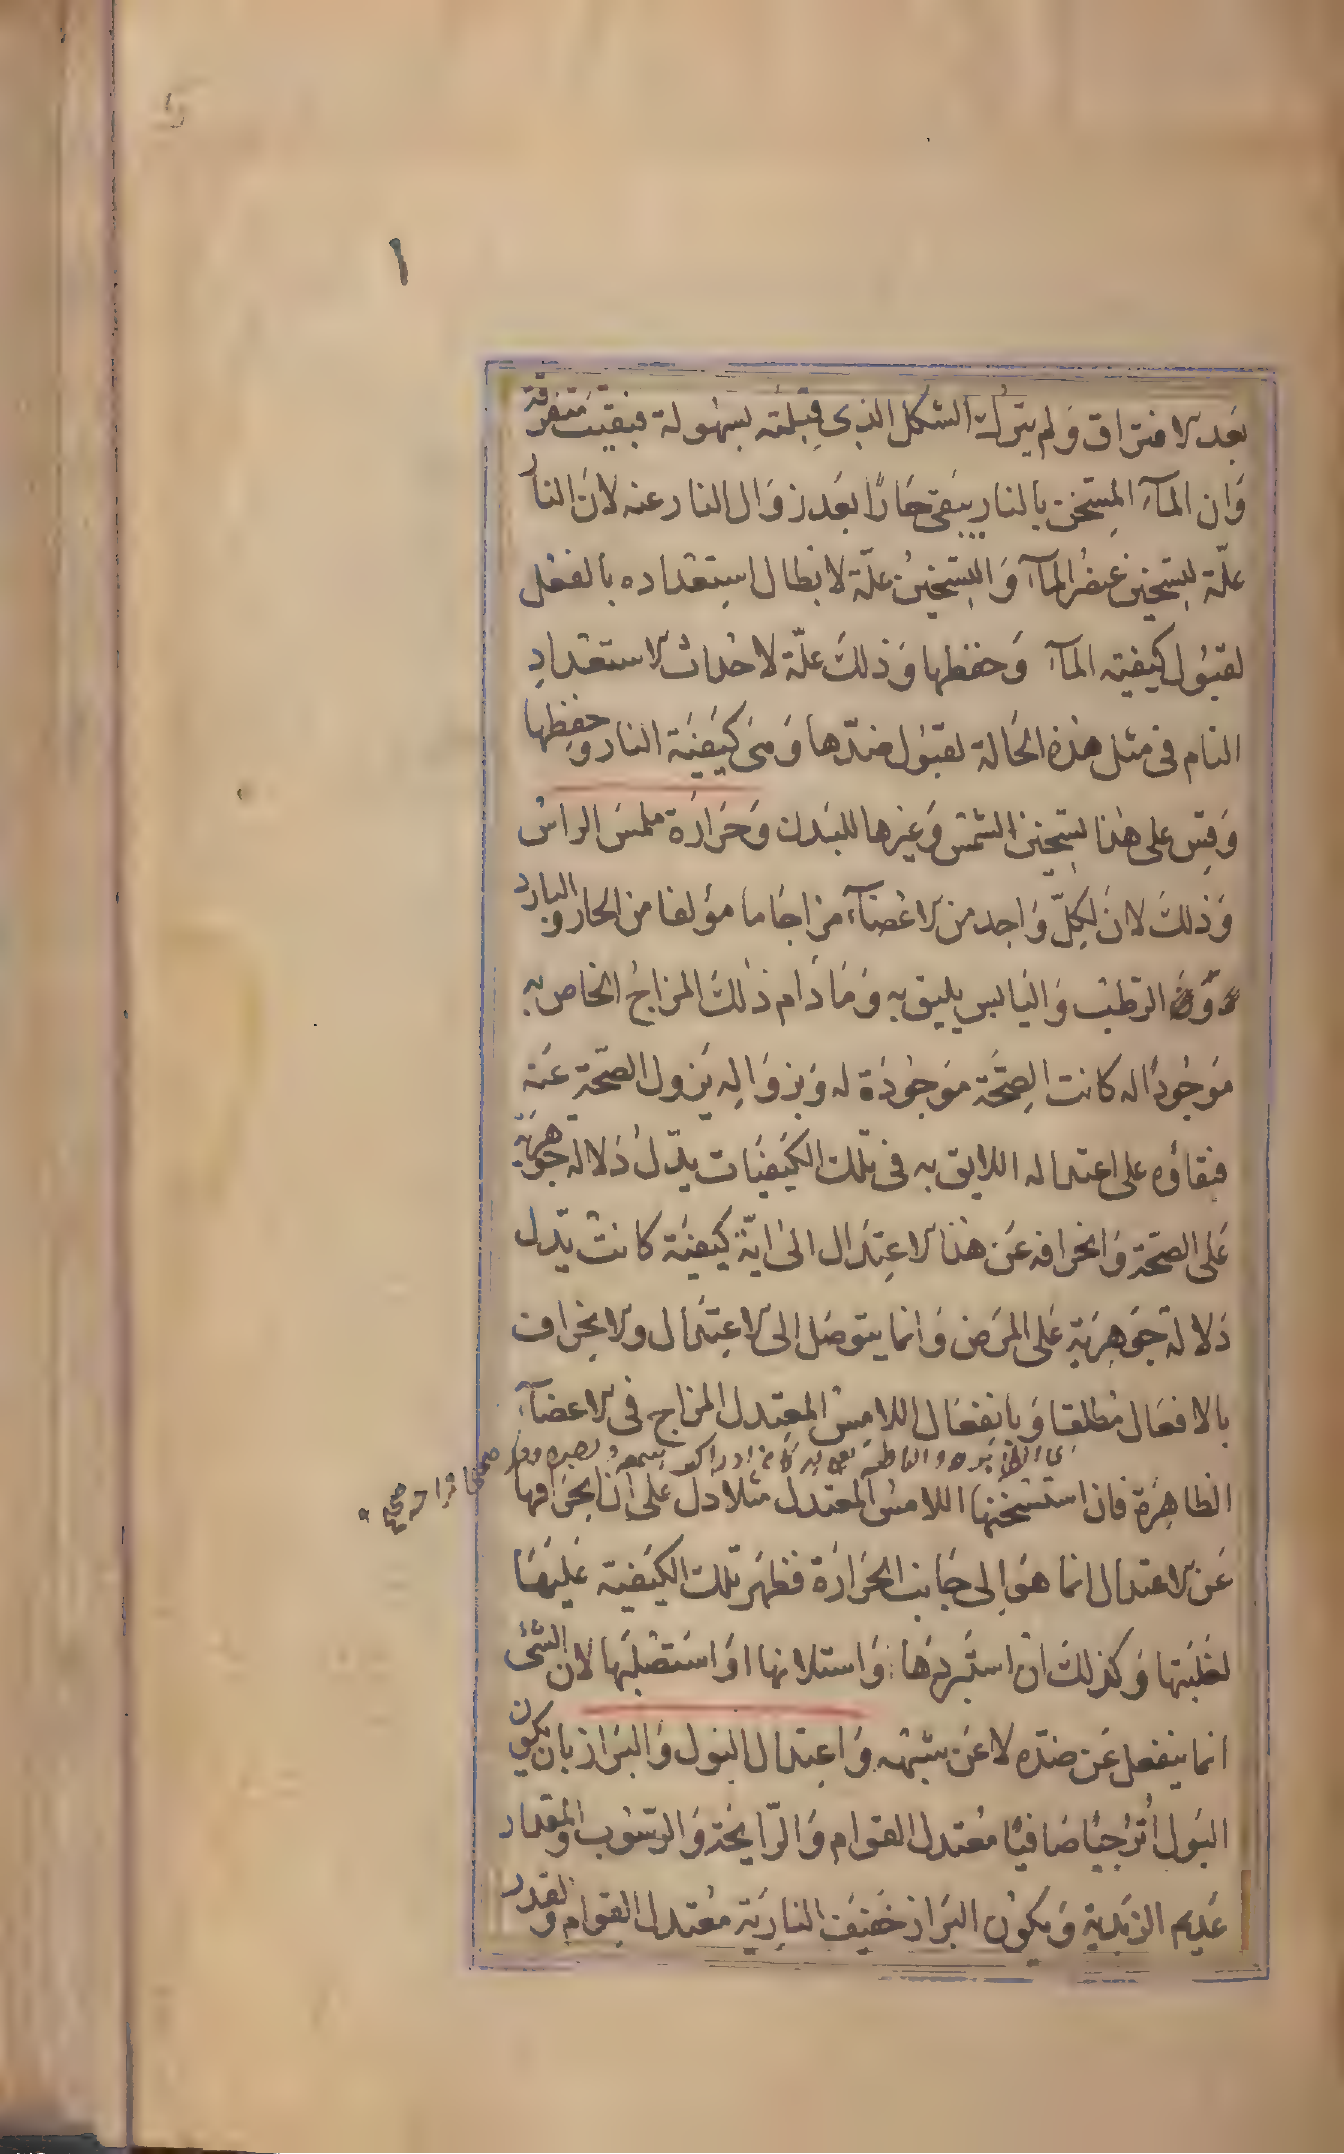 ١
بَعد الافتراق وَلم يترك الشكل الذى قبلته بسهُولة فبقيت متفرقة
وَان المآء المسخن بالنار يبقى حَارًا بعَد زوَال النار عنه لانّ النار
علّة لتسخين عنصُر المآء وَالتسخينُ علّة لابطال استعداده بالفعْل
لقبُول كيفية المآء وَحفظها وَذلكَ علّة لاحداث الاستعدادِ
التام فى مثل هذه الحَالة لقبوُل ضدّها وَهى كيَفيَة النار وحفظها
وَقِس على هٰذا تسخين الشمسْ وَغيرها للبدن وَحَرارَة ملمسَ الراسْ
وَذٰلكَ لانَ لكِلّ وَاحد من الاعْضآء مزاجَا ما مؤلفا من الحار والبارد
وَ الرّطبْ وَاليَابس يليق به وَمَا دَام ذٰلكَ المزاجُ الخاص به
موَجُودًا له كانت الصِحّة موَجوُدَة له وَبزوَالِه يَزول الصّحّة عَنه
فبقاؤه على اعتداله اللايق به فى تلّك الكيَفيَات يدّل دَلاله جوَهريّة
عَلى الصّحّة وَانحرافه عَن هٰذا الاعتِدَال الىٰ ايّة كيَفيَة كانتْ يدّل
دَلالة جَوهريَة عَلى المرَض وَانما يتوصَل الى الاعتِدَال والانحراف
بالافعَال مطلقا وَبانفعَال اللامسْ المعتِدل المزاج فى الاعضآء
الظاهِرَة فان استسْخنها اللامسُ المعتدل مثلا دَل على انّ انحرَافها
عَن الاعتدال انما هوَ الى جَانب الحَرارَة فظهَر تلّك الكيَفية عَليهَا
لغلَبَتها وَكذلكَ ان استَبردَهَا وَاستلانها اوَ استَصْلبَها لان الشئ
انما ينفعل عَن ضدّه لا عَن شبَهه وَاعِتدال البَول وَالبَراز بان يكون
البَول اُترُجيًا صَافيًا معُتدل القوام وَالرّايحَة وَالرّسُوب والمقدار
عَديم الزبَدية وَيكوُن البَراز خَفيفَ النارِيَة معُتدل القِوام والقدر